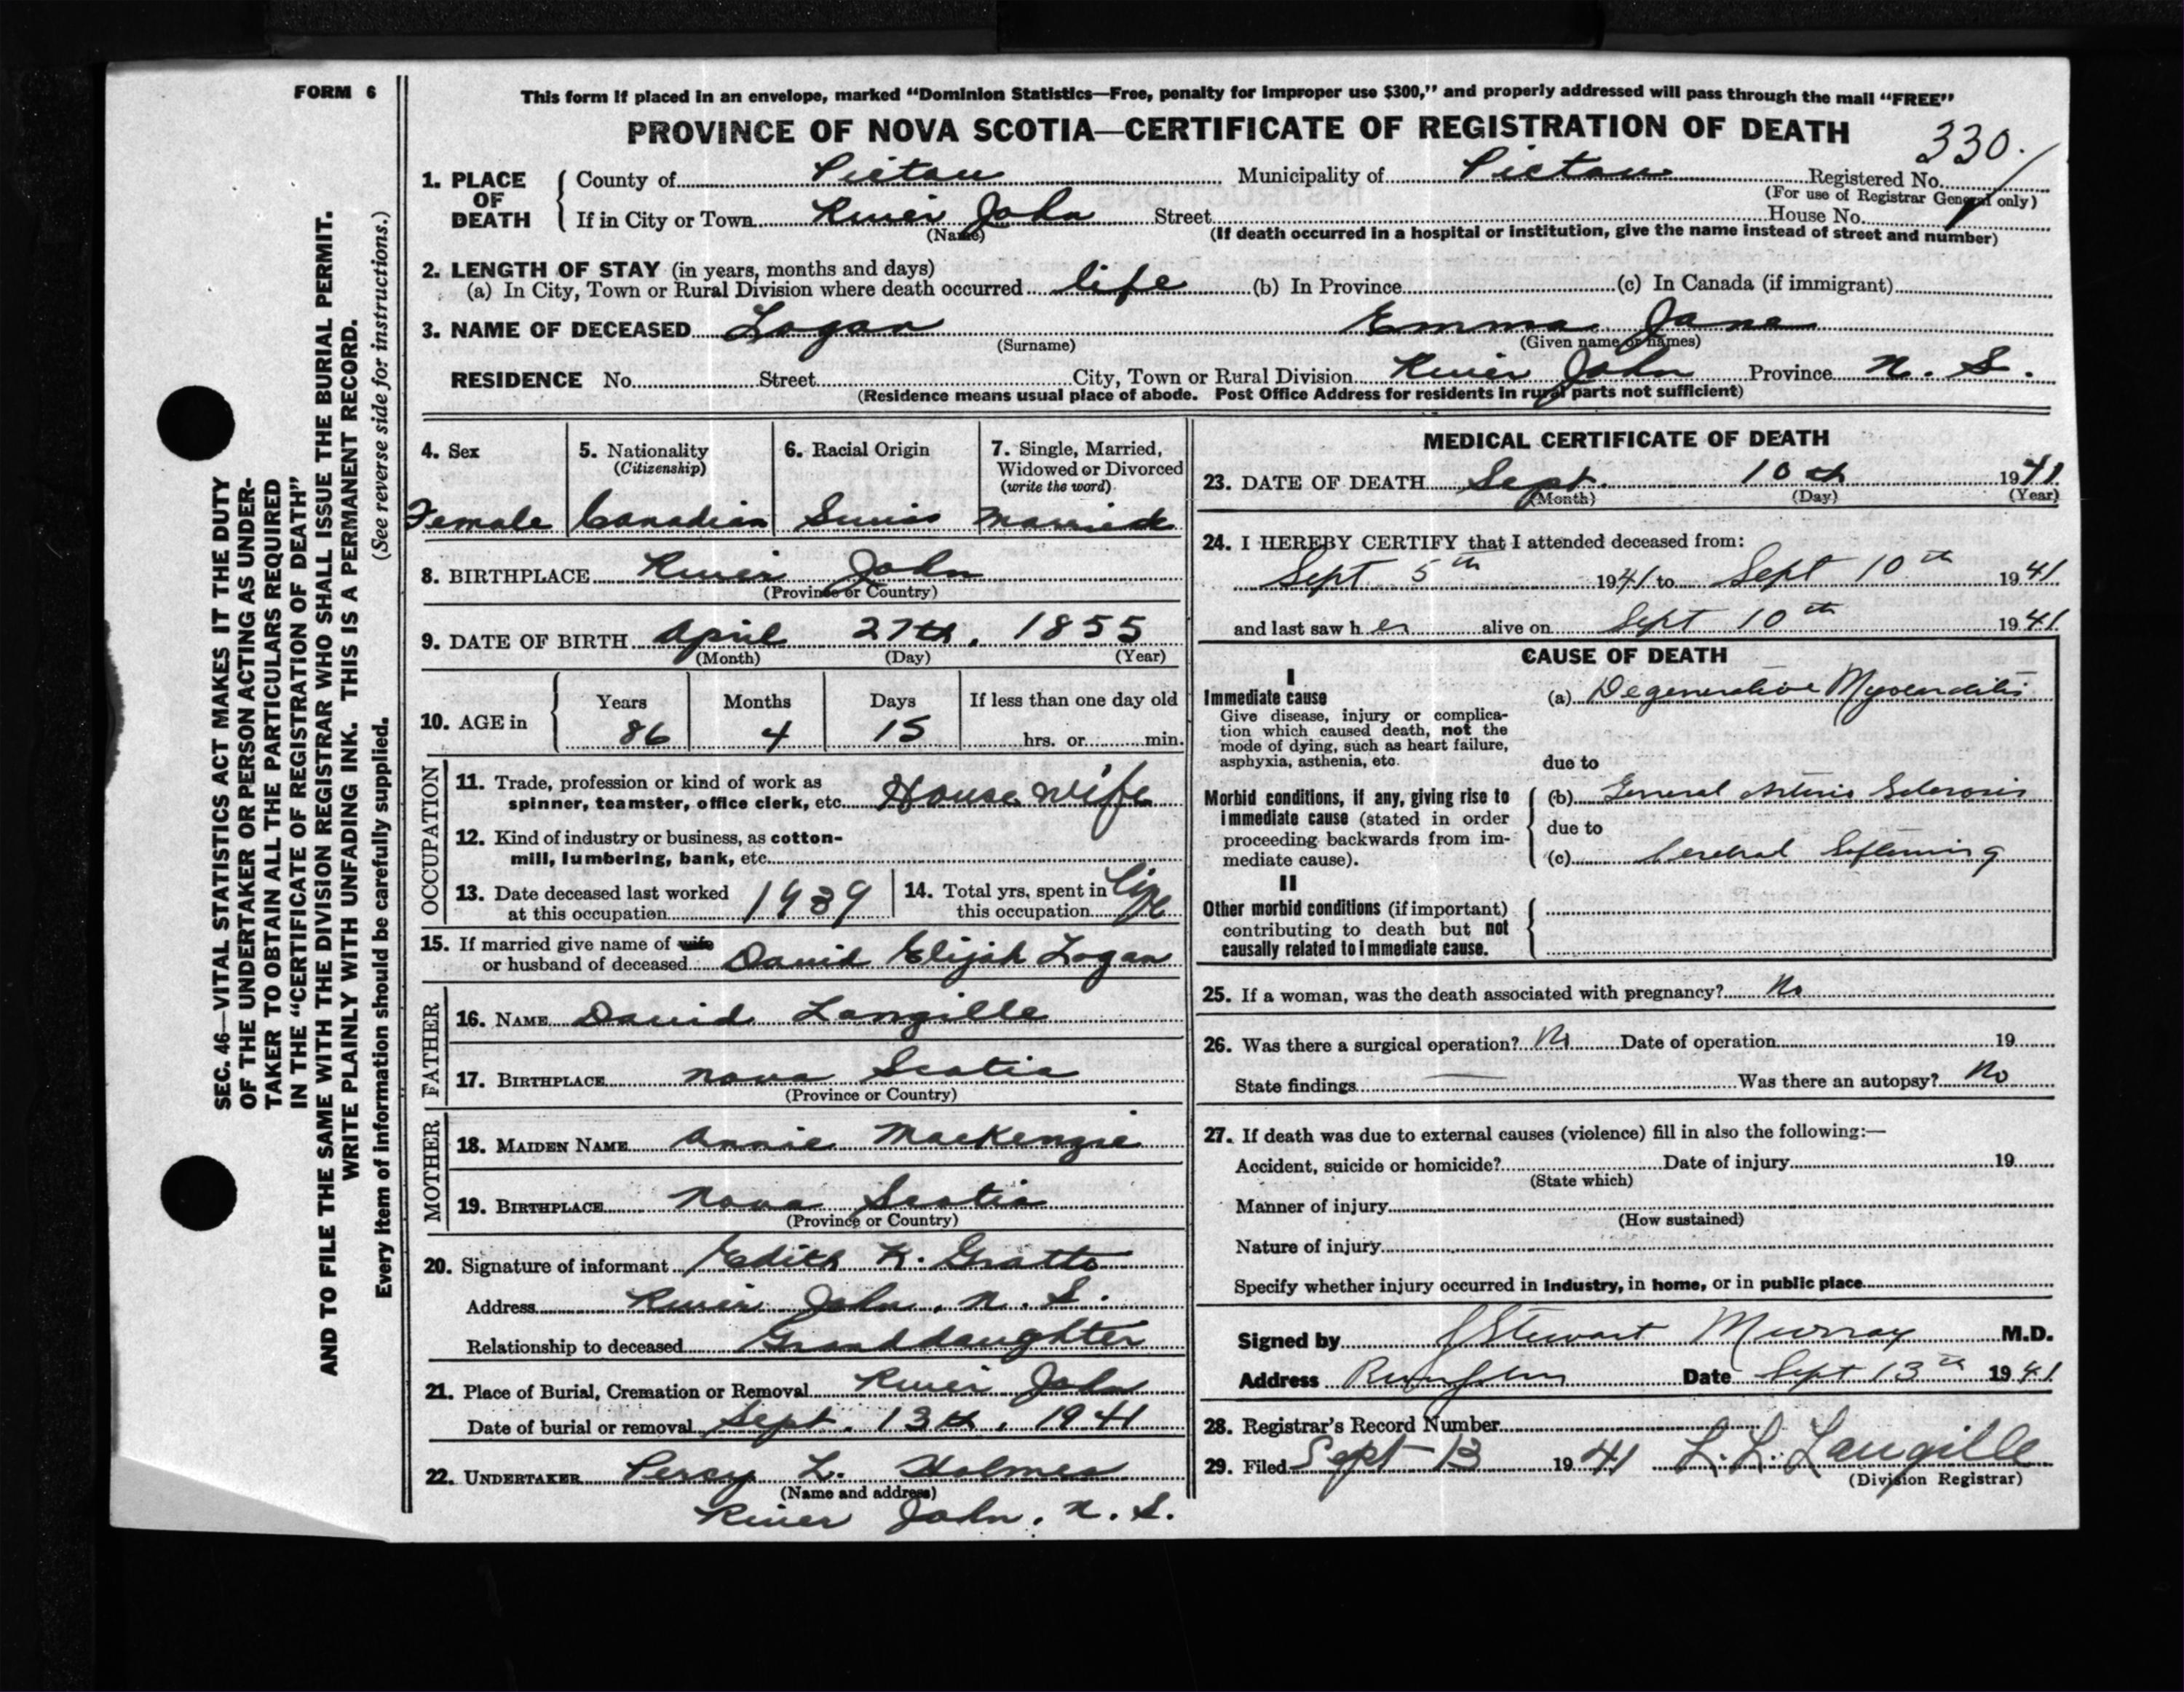 FORM 6
SEC. 46—VITAL STATISTICS ACT MAKES IT THE DUTY
OF THE UNDERTAKER OR PERSON ACTING AS UNDER-
TAKER TO OBTAIN ALL THE PARTICULARS REQUIRED
IN THE "CERTIFICATE OF REGISTRATION OF DEATH"
AND TO FILE THE SAME WITH THE DIVISION REGISTRAR WHO SHALL ISSUE THE BURIAL PERMIT.
WRITE PLAINLY WITH UNFADING INK. THIS IS A PERMANENT RECORD.
Every item of information should be carefully supplied. (See reverse side for instructions.)
This form if placed in an envelope, marked "Dominion Statistics—Free, penalty for improper use $300," and properly addressed will pass through the mail "FREE"
PROVINCE OF NOVA SCOTIA—CERTIFICATE OF REGISTRATION OF DEATH
330.
1. PLACE OF DEATH County of Pictou Municipality of Pictou Registered No.
(For use of Registrar General only)
If in City or Town River John Street House No.
(Name) (If death occurred in a hospital or institution, give the name instead of street and number)
2. LENGTH OF STAY (in years, months and days)
(a) In City, Town or Rural Division where death occurred life (b) In Province (c) In Canada (if immigrant)
3. NAME OF DECEASED Logan Emma Jane
(Surname) (Given name or names)
RESIDENCE No. Street City, Town or Rural Division River John Province N. S.
(Residence means usual place of abode. Post Office Address for residents in rural parts not sufficient)
4. Sex 5. Nationality (Citizenship) 6. Racial Origin 7. Single, Married, Widowed or Divorced (write the word)
Female Canadian Swiss Married
8. BIRTHPLACE River John
(Province or Country)
9. DATE OF BIRTH April 27th, 1855
(Month) (Day) (Year)
10. AGE in Years Months Days If less than one day old
86 4 15 hrs. or min.
OCCUPATION
11. Trade, profession or kind of work as
spinner, teamster, office clerk, etc. House Wife
12. Kind of industry or business, as cotton-
mill, lumbering, bank, etc.
13. Date deceased last worked at this occupation 1939 14. Total yrs. spent in this occupation life
15. If married give name of wife
or husband of deceased David Elijah Logan
FATHER
16. NAME David Langille
17. BIRTHPLACE Nova Scotia
(Province or Country)
MOTHER
18. MAIDEN NAME Annie MacKenzie
19. BIRTHPLACE Nova Scotia
(Province or Country)
20. Signature of informant Edith K. Gratto
Address River John, N. S.
Relationship to deceased Granddaughter
21. Place of Burial, Cremation or Removal River John
Date of burial or removal Sept. 13th, 1941
22. UNDERTAKER Percy L. Holmes
(Name and address)
River John, N. S.
MEDICAL CERTIFICATE OF DEATH
23. DATE OF DEATH Sept. 10th 1941
(Month) (Day) (Year)
24. I HEREBY CERTIFY that I attended deceased from:
Sept 5th 1941 to Sept 10th 1941
and last saw her alive on Sept 10th 1941
CAUSE OF DEATH
I
Immediate cause (a) Degenerative Myocarditis
Give disease, injury or complica-
tion which caused death, not the
mode of dying, such as heart failure,
asphyxia, asthenia, etc. due to
Morbid conditions, if any, giving rise to (b) General Arterio Sclerosis
immediate cause (stated in order due to
proceeding backwards from im-
mediate cause). (c) Cerebral Softening
II
Other morbid conditions (if important)
contributing to death but not
causally related to immediate cause.
25. If a woman, was the death associated with pregnancy? No
26. Was there a surgical operation? No Date of operation 19
State findings — Was there an autopsy? No
27. If death was due to external causes (violence) fill in also the following:—
Accident, suicide or homicide? Date of injury 19
(State which)
Manner of injury
(How sustained)
Nature of injury
Specify whether injury occurred in industry, in home, or in public place
Signed by J Stewart Murray M.D.
Address River John Date Sept 13th 1941
28. Registrar's Record Number
29. Filed Sept 13 1941 L. L. Langille
(Division Registrar)